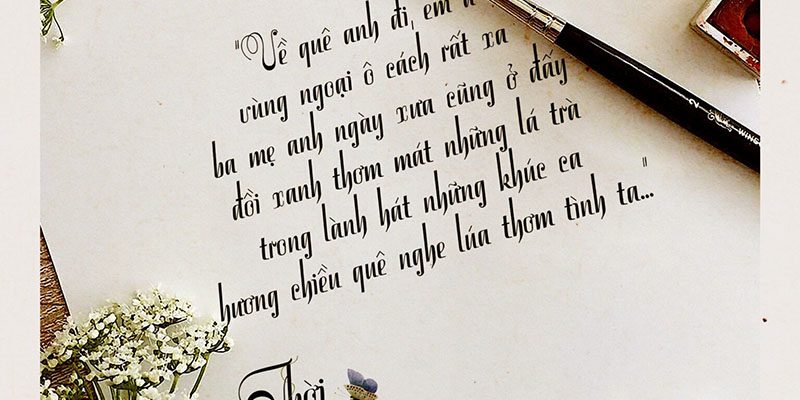 "Về quê anh đi, em
vùng ngoại ô cách rất xa
ba mẹ anh ngày xưa cũng ở đấy
đồi xanh thơm mát những lá trà
trong lành hát những khúc ca
hương chiều quê nghe lúa thơm tình ta..."
Thời
2 WINS